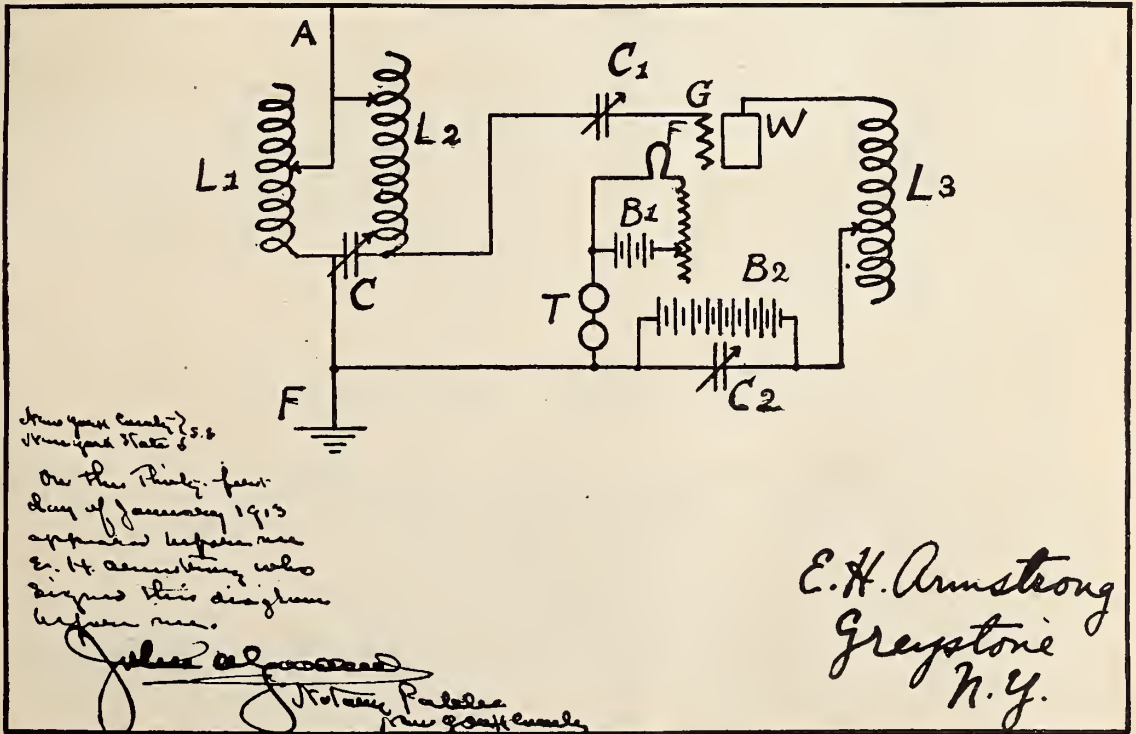 A
C1
G
F
W
L2
L1
L3
B1
B2
C
T
C2
F
New York County } S.S
New York State
On this Thirty-first
day of January 1913
appeared before me
E. H. Armstrong who
signed this diagram
before me.
Notary Public
New York County
E.H. Armstrong
Greystone
N.Y.